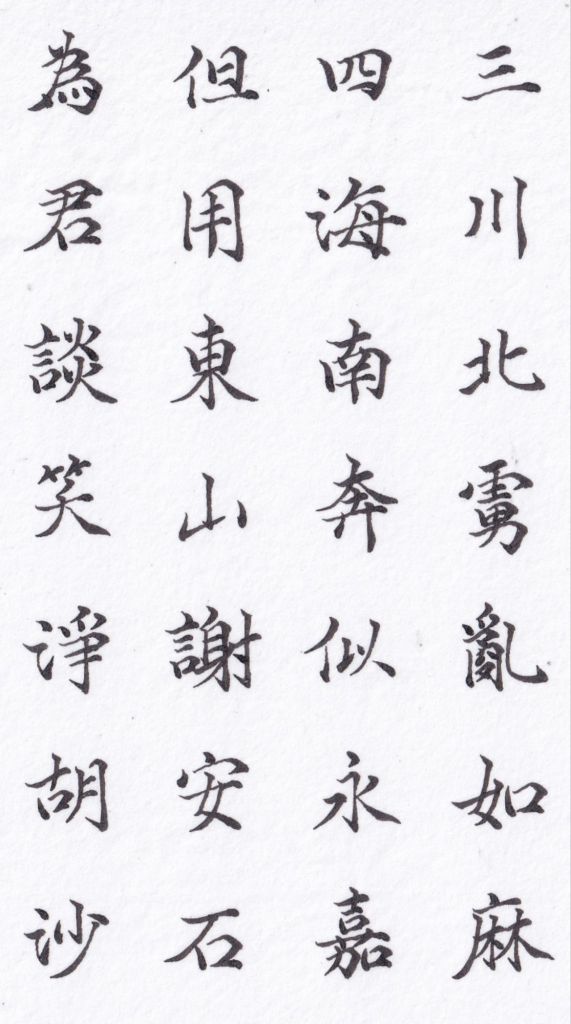 三川北虜亂如麻
四海南奔似永嘉
但用東山謝安石
為君談笑淨胡沙